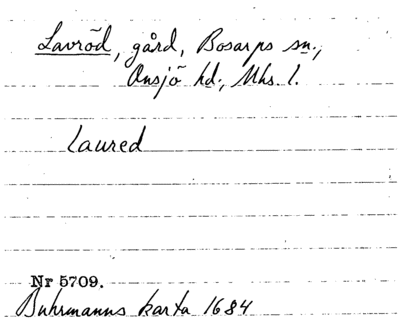 Lavröd, gård, Bosarps sn.,
Onsjö hd., Mhs. l.
Laured
Nr 5709.
Buhrmanns karta 1684